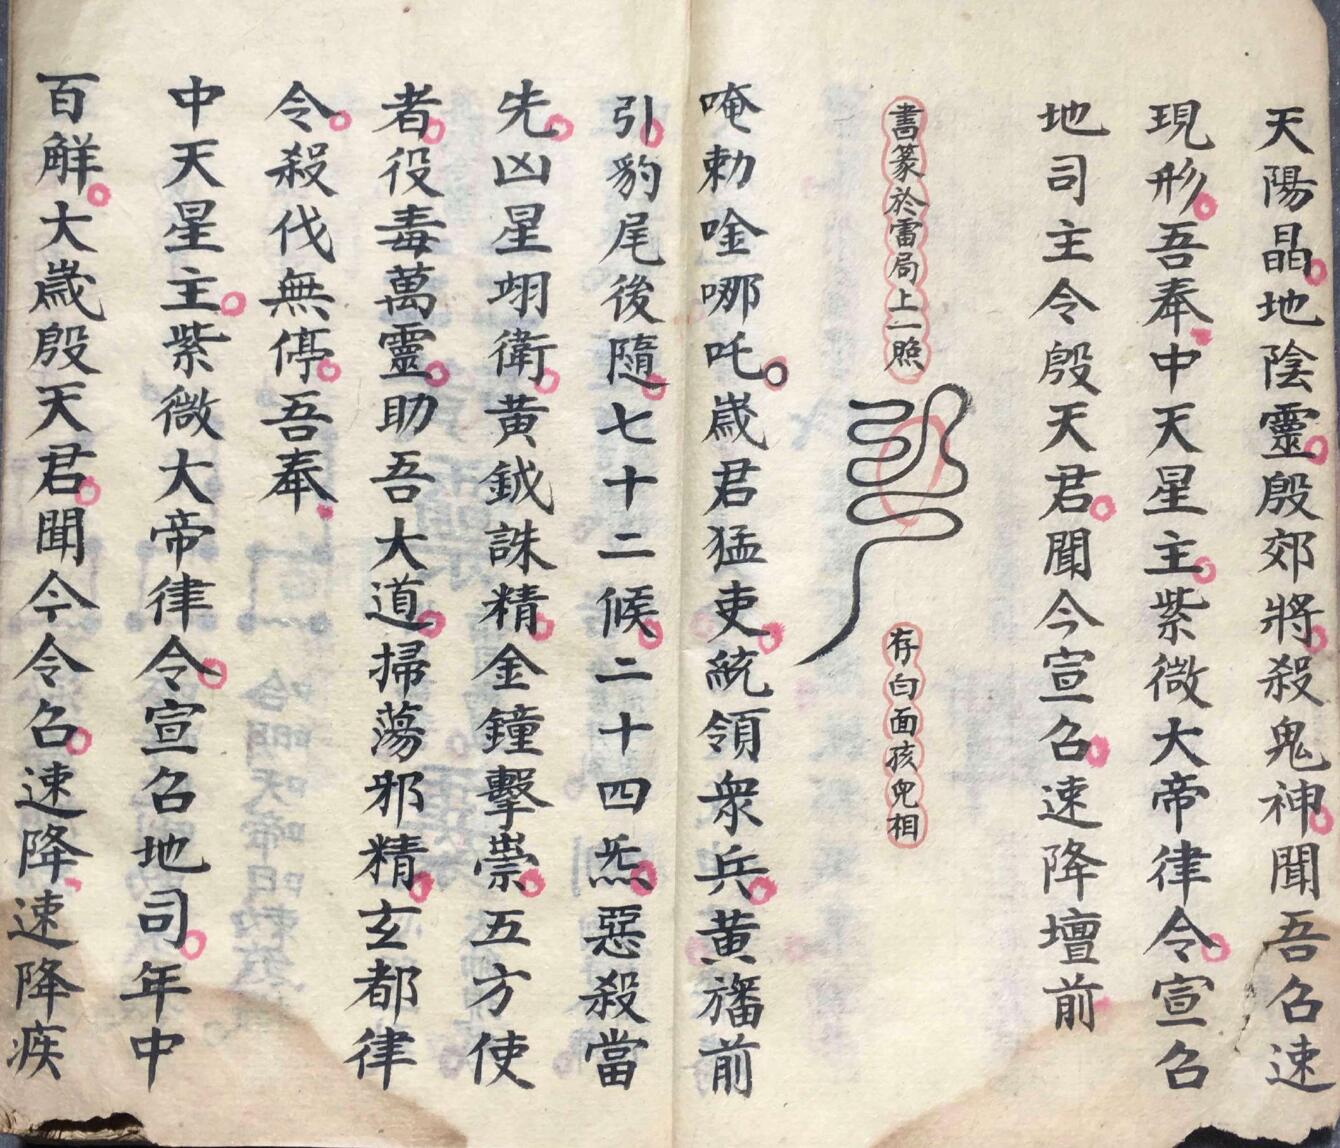 天陽晶地陰靈殷郊將殺鬼神聞吾召速
現形吾奉中天星主紫微大帝律令宣召
地司主令殷天君聞今宣召速降壇前
書篆於雷局上一照
存白面孩兒相
唵勅唫哪吒歲君猛吏統領衆兵黃旛前
引豹尾後隨七十二候二十四炁惡殺當
先凶星翊衛黃鉞誅精金鐘擊祟五方使
者役毒萬靈助吾大道掃蕩邪精玄都律
令殺伐無停吾奉
中天星主紫微大帝律令宣召地司年中
百解大歲殷天君聞今令召速降速降疾